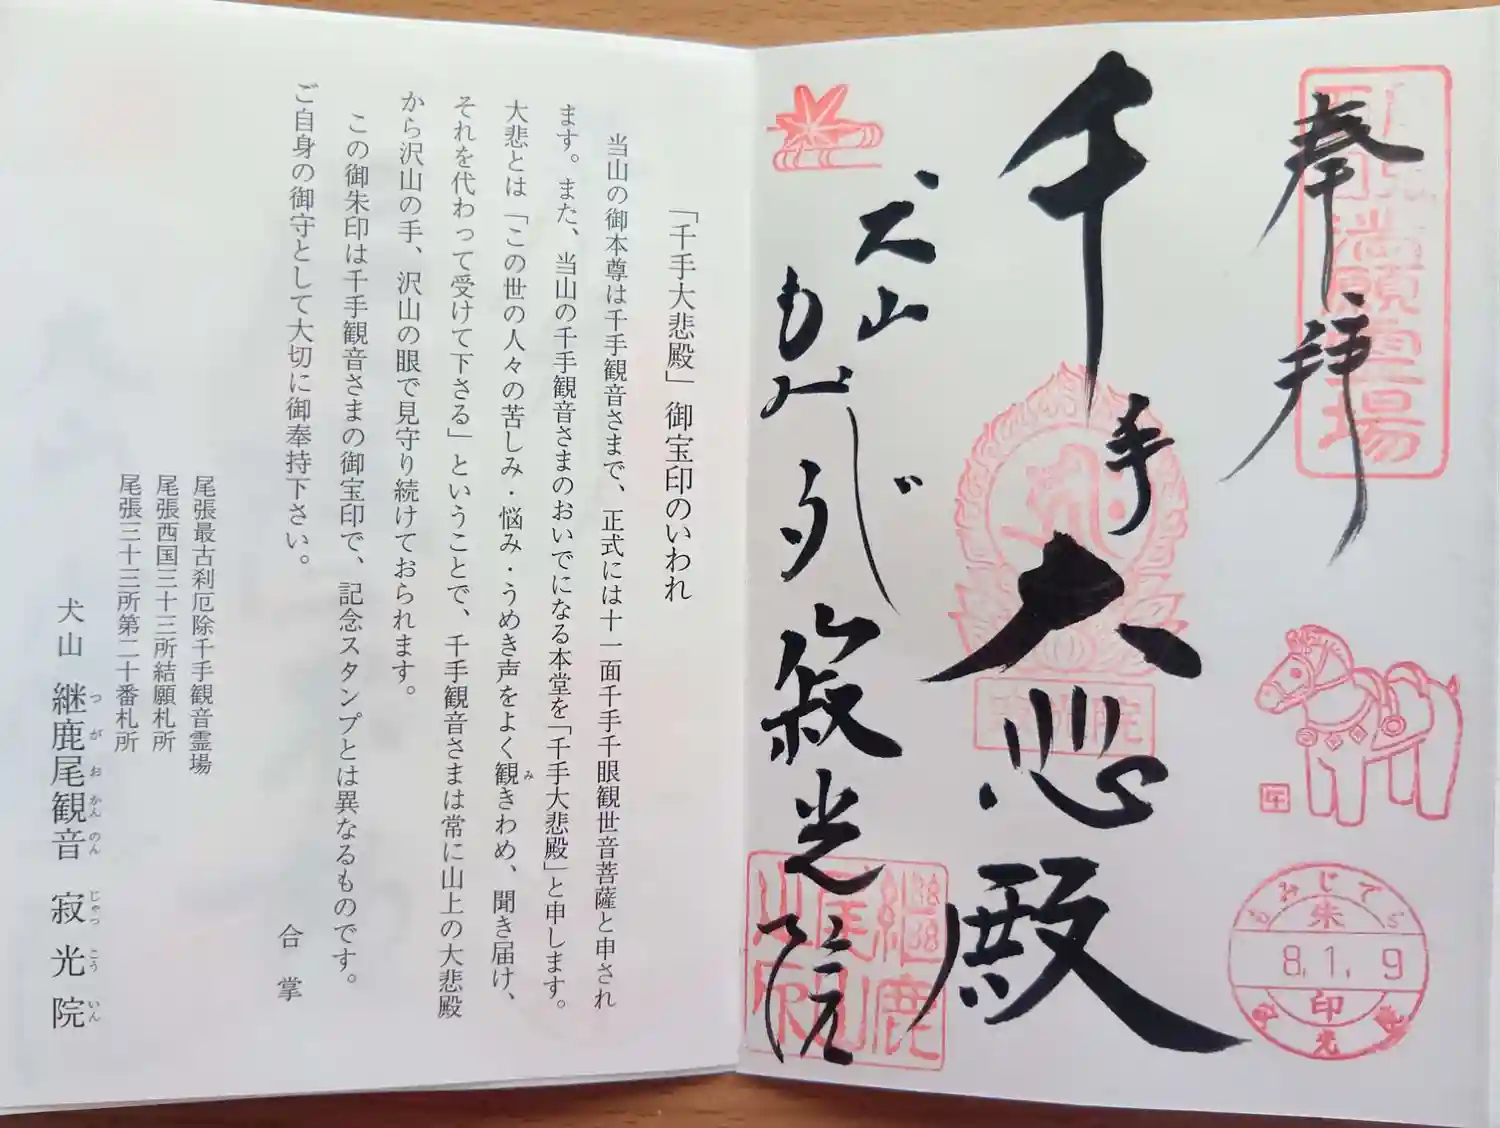 奉拝
千手大悲殿
犬山
もみじでら
寂光院
満願霊場
午
もみじでら
朱
8.1.9
印
継鹿
尾山
「千手大悲殿」御宝印のいわれ
当山の御本尊は千手観音さまで、正式には十一面千手千眼観世音菩薩と申され
ます。また、当山の千手観音さまのおいでになる本堂を「千手大悲殿」と申します。
大悲とは「この世の人々の苦しみ・悩み・うめき声をよく観きわめ、聞き届け、
み
それを代わって受けて下さる」ということで、千手観音さまは常に山上の大悲殿
から沢山の手、沢山の眼で見守り続けておられます。
この御朱印は千手観音さまの御宝印で、記念スタンプとは異なるものです。
ご自身の御守として大切に御奉持下さい。
合掌
尾張最古刹厄除千手観音霊場
尾張西国三十三所結願札所
尾張三十三所第二十番札所
犬山 継鹿尾観音 寂光院
つがおかんのん じゃっこういん